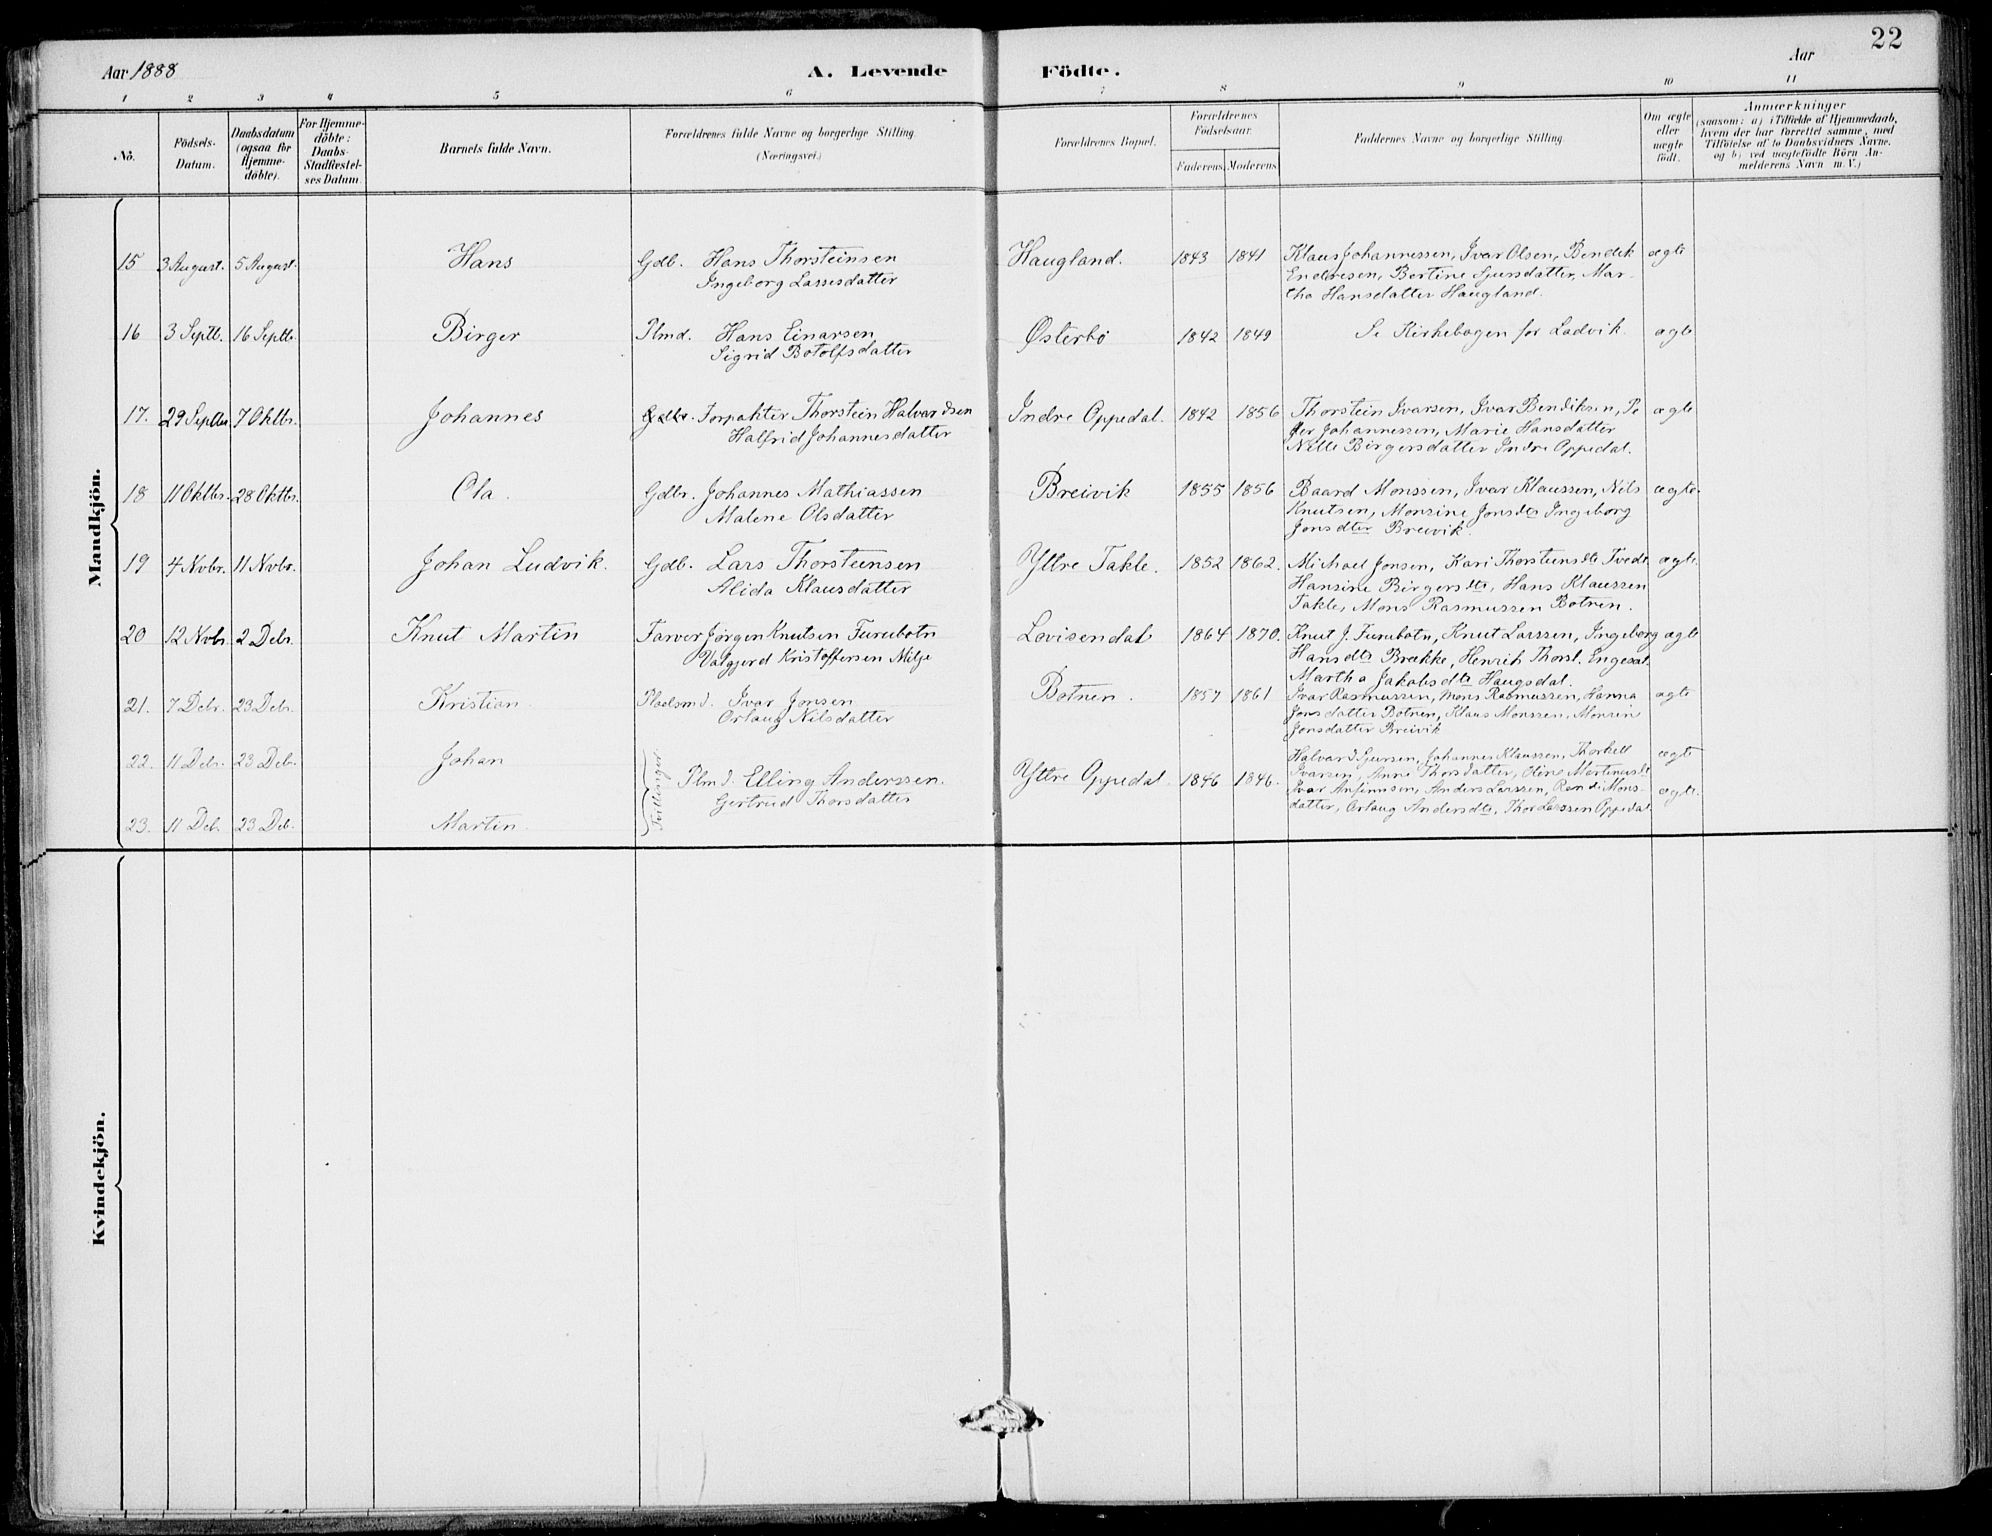 22
Aar 1888
A. Levende Födte.
Aar
1 2 3 4 5 6 7 8 9 10 11
No.
Födsels-Datum.
Daabsdatum (ogsaa for Hjemme-döbte).
For Hjemme-döbte: Daabs-Stadfæstel-ses Datum.
Barnets fulde Navn.
Forældrenes fulde Navne og borgerlige Stilling.
(Næringsvei.)
Forældrenes Bopæl.
Forældrenes Födselsaar.
Faderens. Moderens.
Faddernes Navne og borgerlige Stilling.
Om ægte eller uægte födt.
Anmærkninger
(saasom: a) i Tilfælde af Hjemmedaab,
hvem der har forrettet samme, med
Tilföielse af to Daabsvidners Navne,
og b) ved uægtefödte Börn An-
melderens Navn m. V.)
Mandkjön.
15 3 August. 5 August. Hans Gdb. Hans Thorsteinsen Haugland. 1843 1841 Klaus Johannessen, Ivar Olsen, Bendik ægte
Ingeborg Lassesdatter Endresen, Bertine Sjursdatter, Mar-
tha Hansdatter Haugland.
16 3 Septb. 16 Septb. Birger Plmd. Hans Einarsen Østerbø 1842 1849 Se Kirkebogen for Ladvik. ægte
Sigrid Botolfsdatter
17. 29 Septbr 7 Oktbr. Johannes Gdbr. Forpakter Thorstein Halvardsen Indre Oppedal. 1842 1856 Thorstein Ivarsen, Ivar Bendiksen, Pe ægte
Halfrid Johannesdatter ter Johannessen, Marie Hansdatter
Nille Birgersdatter Indre Oppedal.
18 11 Oktbr. 28 Oktbr. Ola. Gdbr. Johannes Mathiassen Breivik 1855 1856 Baard Monssen, Ivar Klaussen, Nils ægte.
Malene Olsdatter Knutsen, Monsine Jonsdtr Ingeborg
Jonsdtr Breivik.
19 4 Nvbr. 11 Nvbr. Johan Ludvik. Gdb. Lars Thorsteinsen Yttre Takle. 1852 1862. Michael Jonsen, Kari Thorsteinsdtr Tvedt ægte.
Alida Klausdatter Hansine Birgersdtr, Hans Klaussen
Takle, Mons Rasmussen Botnen.
20 12 Nvbr. 2 Debr. Knut Martin Farver Jørgen Knutsen Furubotn Lovisendal 1864 1870. Knut J. Furubotn, Knut Larssen, Ingeborg ægte
Valgjerd Kristoffersen Milje Hansdtr Brække, Henrik Thorst. Engesæt
Martha Jakobsdtr Haugsdal.
21. 7 Debr. 23 Debr. Kristian. Pladsmd. Ivar Jonsen Botnen. 1857 1861 Ivar Rasmussen, Mons Rasmussen, Hanna ægte
Orlaug Nilsdatter Jonsdatter Botnen, Klaus Monssen, Monsine
Jonsdatter Breivik
22. 11 Debr. 23 Debr. Johan Halvard Sjursen, Johannes Klaussen, Thorkell ægte
Tvillinger Plmd. Elling Anderssen. Yttre Oppedal. 1846 1846. Ivarsen, Anne Thorsdatter, Oline Martinusdtr
Gertrud Thorsdatter Ivar Anfinnsen, Anders Larssen, Randi Mons- ægte.
23. 11 Deb. 23 Deb. Martin. datter, Orlaug Andersdtr, Thor Larssen Oppedal
Kvindekjön.